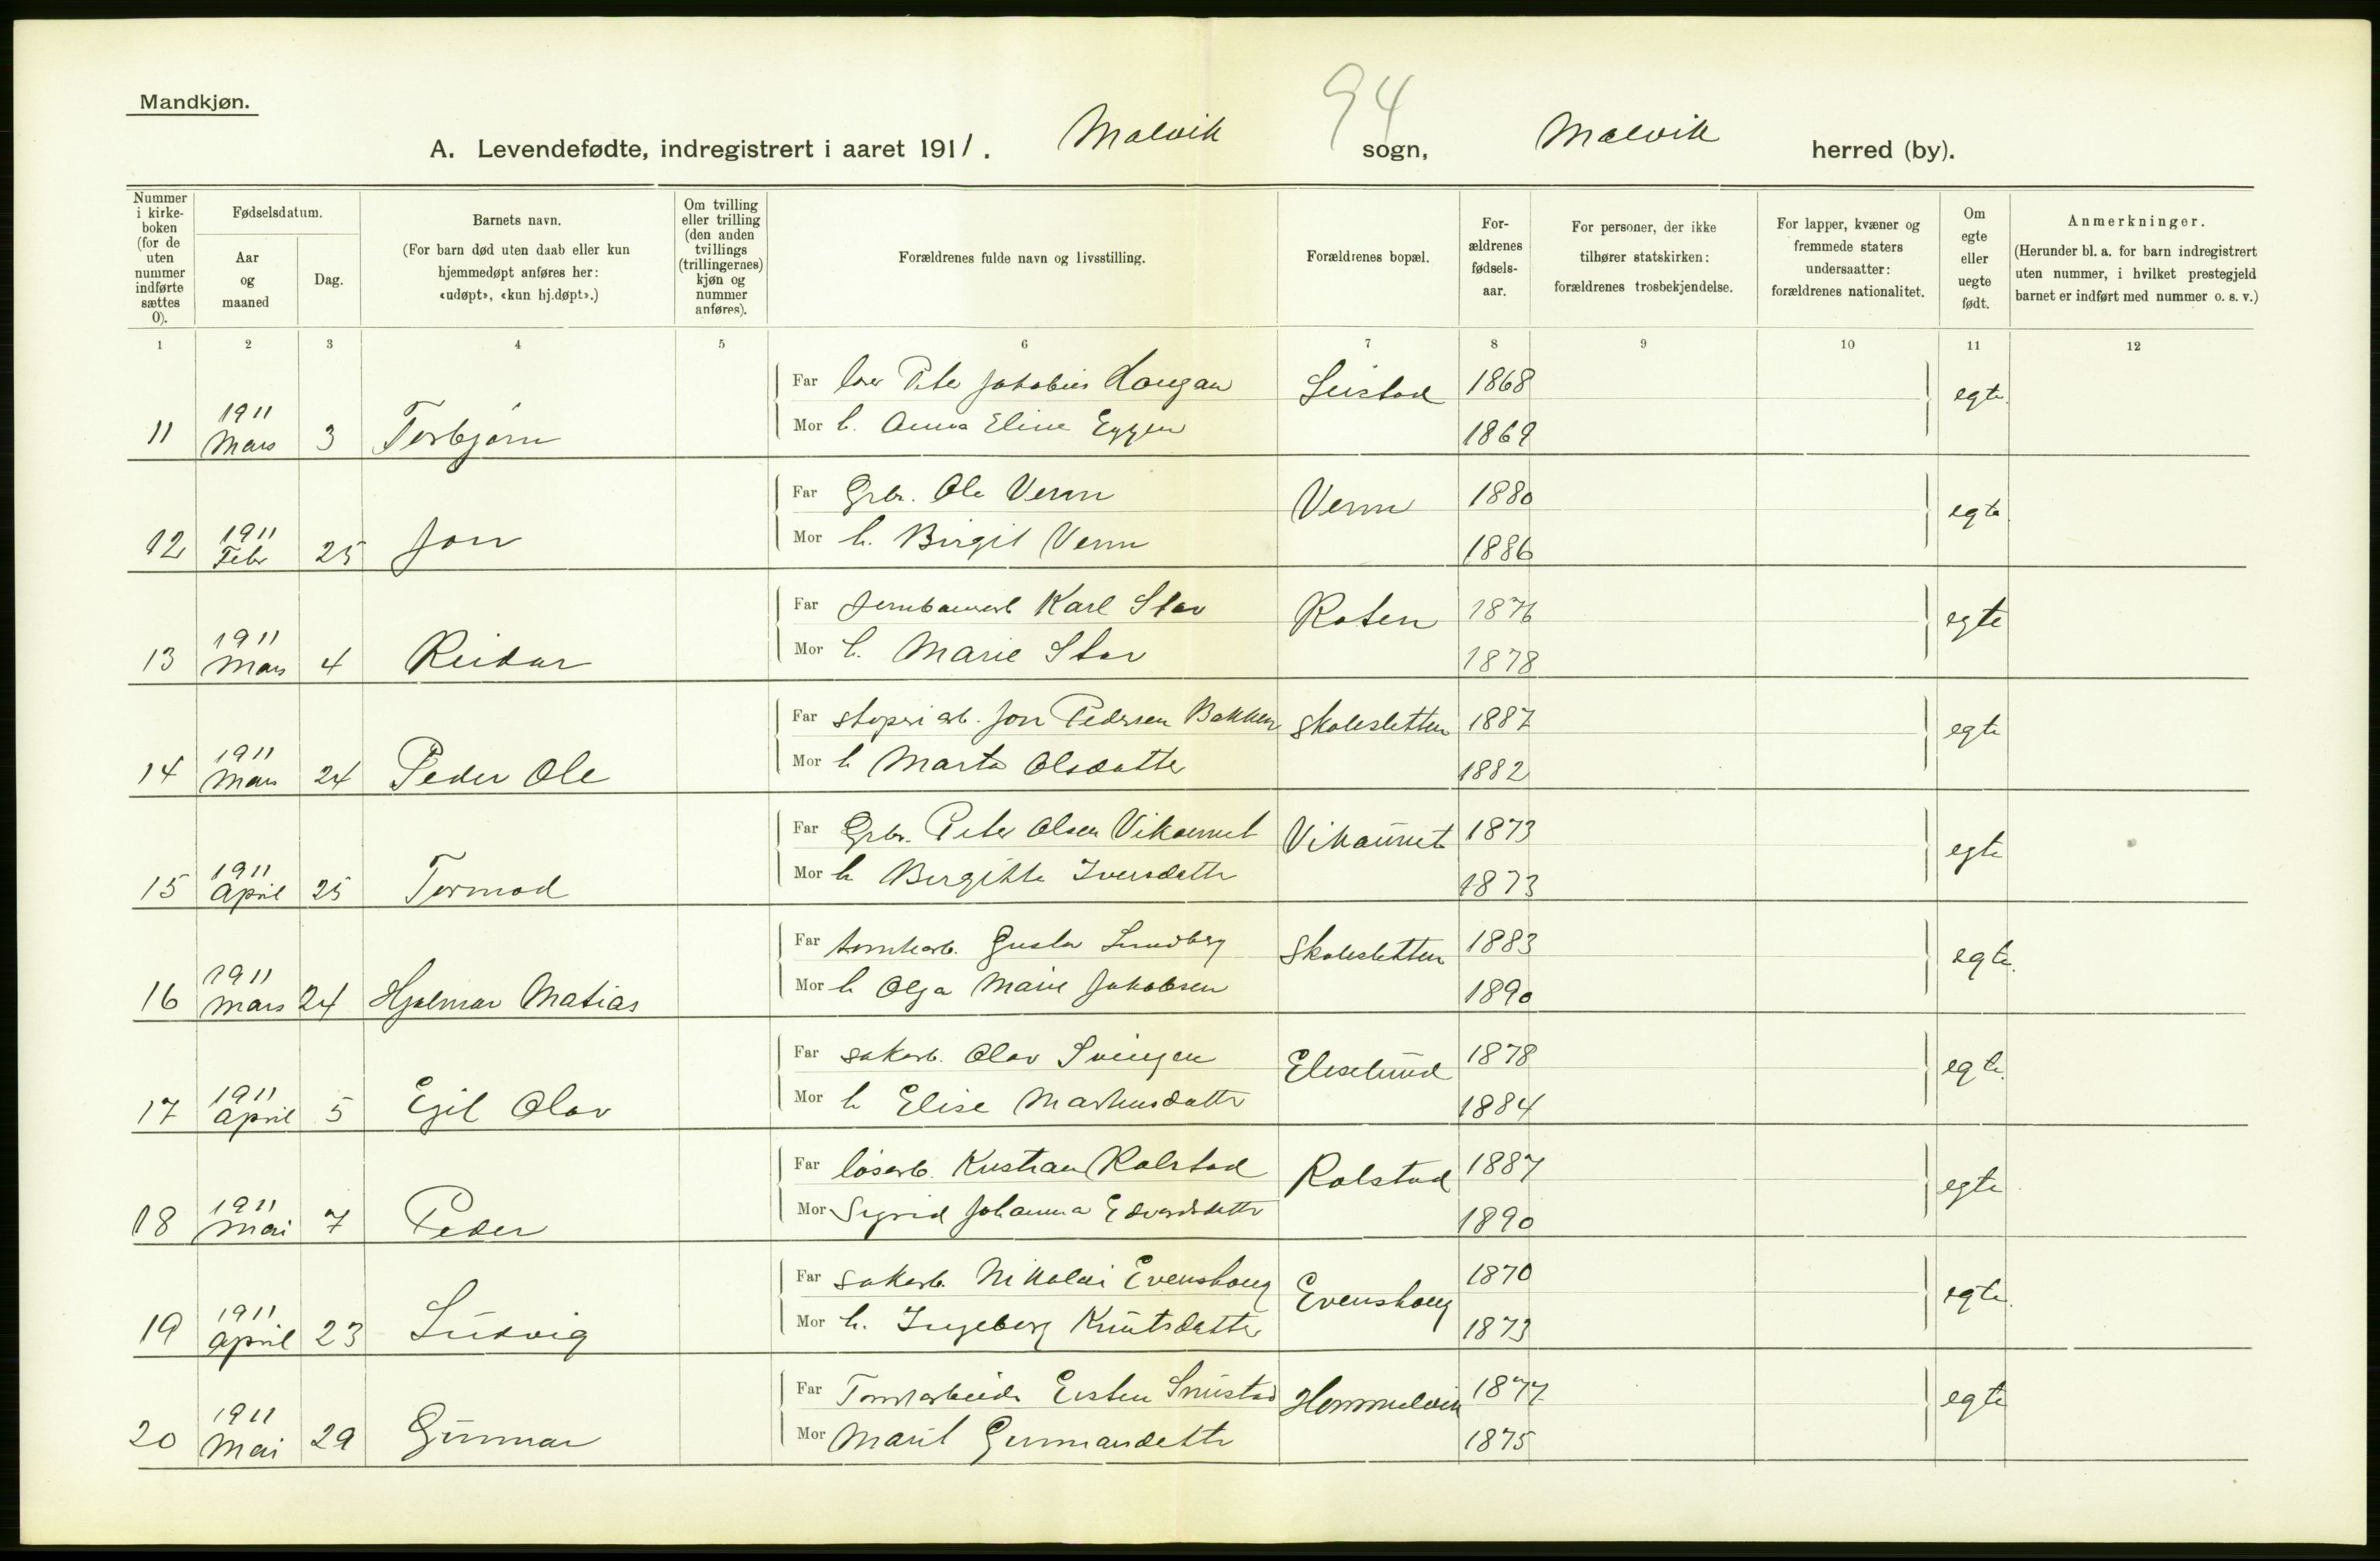 94
Mandkjøn.
A. Levendefødte, indregistrert i aaret 1911. Malvik sogn, Malvik herred (by).
Nummer i kirke-boken (for de uten nummer indførte sættes 0).
Fødselsdatum.
Aar og maaned
Dag.
Barnets navn.
(For barn død uten daab eller kun hjemmedøpt anføres her: «udøpt», «kun hj.døpt».)
Om tvilling eller trilling (den anden tvillings (trillingernes) kjøn og nummer anføres).
Forældrenes fulde navn og livsstilling.
Forældrenes bopæl.
For-ældrenes fødsels-aar.
For personer, der ikke tilhører statskirken: forældrenes trosbekjendelse.
For lapper, kvæner og fremmede staters undersaatter: forældrenes nationalitet.
Om egte eller uegte født.
Anmerkninger.
(Herunder bl. a. for barn indregistrert uten nummer, i hvilket prestegjeld barnet er indført med nummer o. s. v.)
1 2 3 4 5 6 7 8 9 10 11 12
Far Peter Jakobius Haugan Leistad 1868 egte.
11 1911 Mars 3 Torbjørn
Mor h. Anna Eline Eggen 1869
Far Grbr. Ole Venn Venn 1880 egte
12 1911 Febr 25 Jon
Mor h. Birgit Venn 1886
Far Jernbanearb Karl Stav Roten 1876 egte
13 1911 Mars 4 Reidar
Mor h. Marie Stav 1878
Far støperiarb. Jon Pedersen Bakken Skolesletten 1887 egte
14 1911 Mars 24 Peder Ole
Mor h Marta Olsdatter 1882
Far Grbr. Peter Olsen Vikaunet Vikaunet 1873 egte
15 1911 April 25 Tormod
Mor h Bergitte Iversdattr 1873
Far tomtearb. Gustav Lundberg Skolesletten 1883 egte.
16 1911 Mars 24 Hjalmar Matias
Mor h Olga Marie Jakobsen 1890
Far sakarb. Olav Svingen Eliselund 1878 egte.
17 1911 April 5 Egil Olav
Mor h Elise Martinusdattr 1884
Far løsarb. Kristian Rolstad Rolstad 1887 egte
18 1911 Mai 7 Peder
Mor Sigrid Johanna Edvardsdattr 1890
Far sakarb. Nikolai Evenshaug Evenshaug 1870 egte.
19 1911 April 23 Ludvig
Mor h. Ingeborg Knutsdatter 1873
Far Tomtarbeider Eisten Snustad Hommelvik 1877 egte
20 1911 Mai 29 Gunnar
Mor Marit Gunnarsdattr 1875